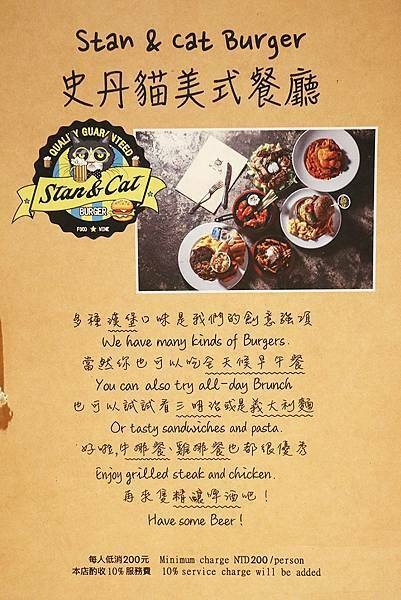 Stan & Cat Burger
史丹貓美式餐廳
QUALITY GUARANTEED
Stan & Cat
BURGER
FOOD ★ WINE
多種漢堡口味是我們的創意強項
We have many kinds of Burgers.
當然你也可以吃全天候早午餐
You can also try all-day Brunch
也可以試試看三明治或是義大利麵
Or tasty sandwiches and pasta.
好啦,牛排餐、雞排餐也都很優秀
Enjoy grilled steak and chicken.
再來隻精釀啤酒吧！
Have some Beer！
每人低消200元 Minimum charge NTD200 /person
本店酌收10%服務費 10% service charge will be added